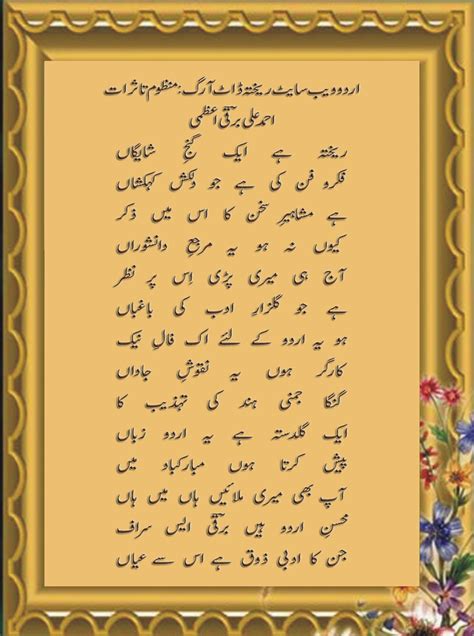 اردو ویب سایٹ ریختہ ڈاٹ آرگ: منظوم تاثرات
احمد علی برقیؔ اعظمی
ریختہ ہے ایک گنجِ شایگاں
فکر و فن کی ہے جو دلکش کہکشاں
ہے مشاہیرِ سخن کا اس میں ذکر
کیوں نہ ہو یہ مرجعِ دانشوراں
آج ہی میری پڑی اِس پر نظر
ہے جو گلزارِ ادب کی باغباں
ہو یہ اردو کے لئے اک فالِ نیک
کارگر ہوں یہ نقوشِ جاداں
گنگا جمنی ہند کی تہذیب کا
ایک گلدستہ ہے یہ اردو زباں
پیش کرتا ہوں مبارکباد میں
آپ بھی میری ملائیں ہاں میں ہاں
محسنِ اردو ہیں برقیؔ ایس سراف
جن کا ادبی ذوق ہے اس سے عیاں